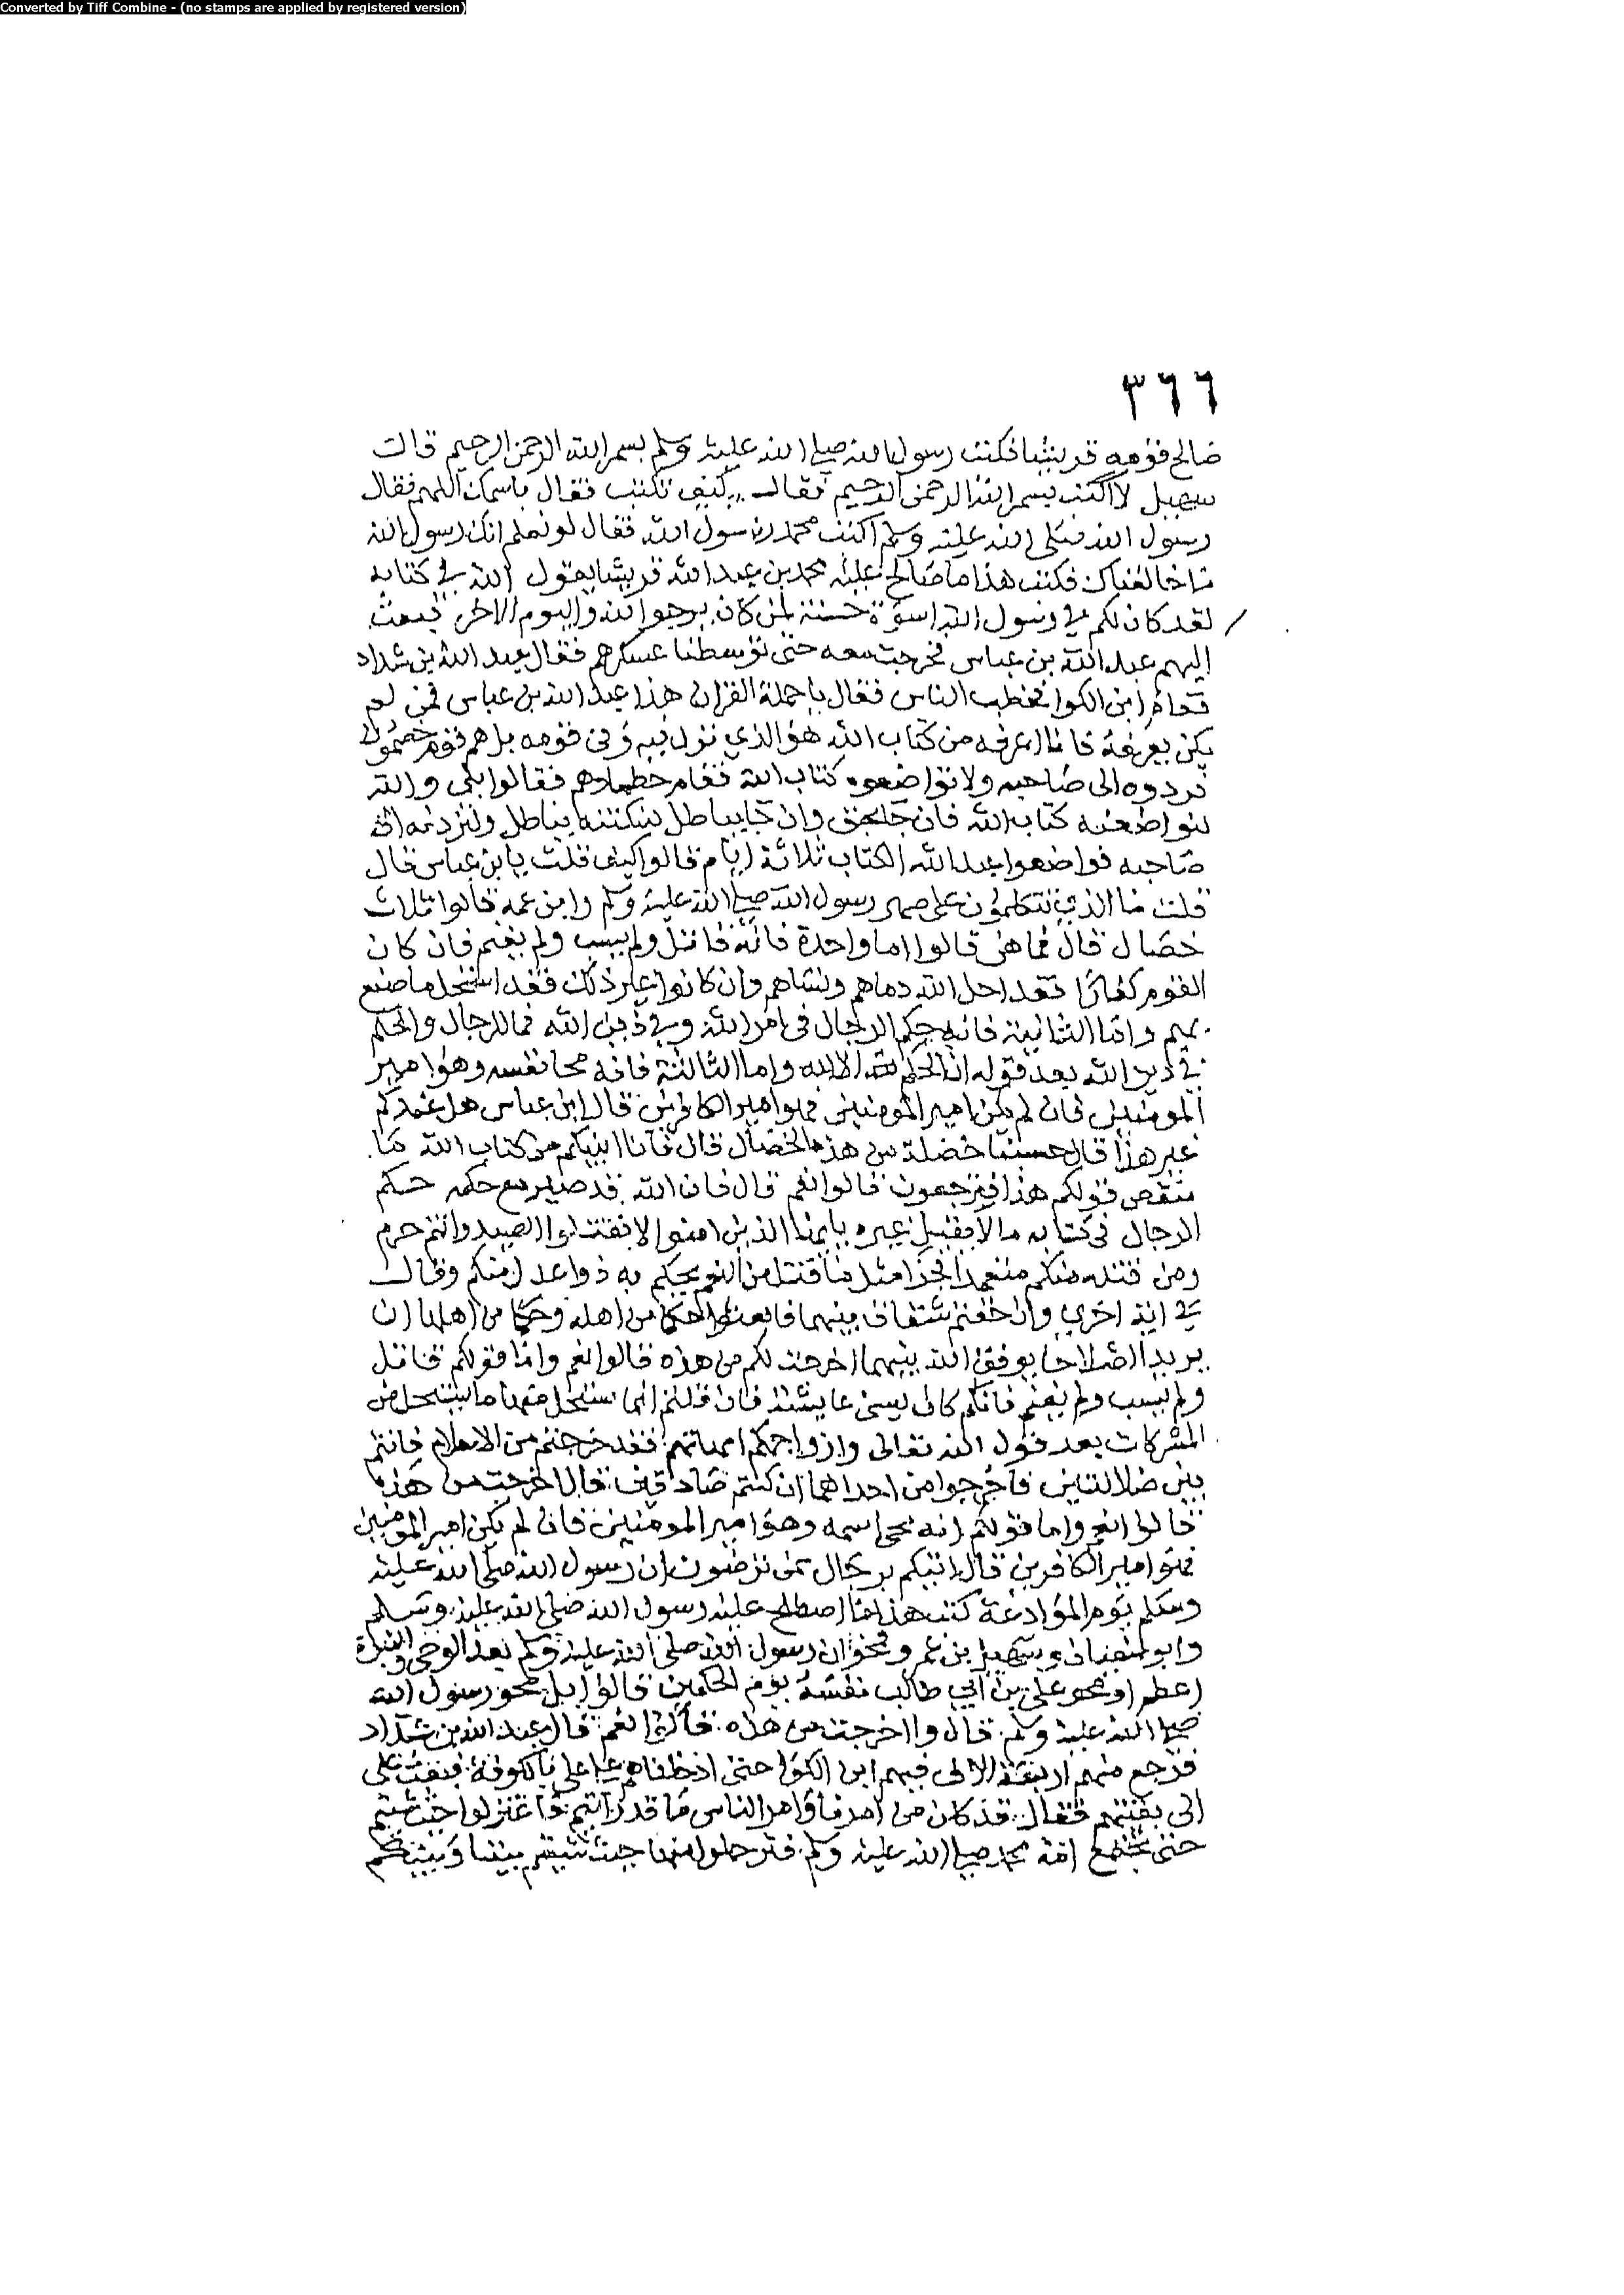 Converted by Tiff Combine - (no stamps are applied by registered version)
٣٦٦
صالح قومه قريشا فكتب رسول الله صلى الله عليه وسلم بسم الله الرحمن الرحيم قال
سهيل لا اكتب بسم الله الرحمن الرحيم فقال كيف تكتب فقال باسمك اللهم فقال
رسول الله صلى الله عليه وسلم اكتب محمد رسول الله فقال لو نعلم انك رسول الله
ما خالفناك فكتب هذا ما صالح عليه محمد بن عبد الله قريشا يقول الله في كتابه
لقد كان لكم في رسول الله اسوة حسنة لمن كان يرجو الله واليوم الاخر فبعث
اليهم عبد الله بن عباس فخرجت معه حتى توسطنا عسكرهم فقال عبد الله بن شداد
فقام ابن الكوا فخطب الناس فقال يا حملة القران هذا عبد الله بن عباس فمن لم
يكن يعرفه فانا اعرفه من كتاب الله هو الذي نزل فيه وفي قومه بل هم قوم خصمون
فردوه الى صاحبه ولا تواضعوه كتاب الله فقام خطباوهم فقالوا بلى والله
لنواضعنه كتاب الله فان جا بحق وان جا بباطل لنبكتنه بباطل ولنردنه الى
صاحبه فواضعوا عبد الله الكتاب ثلاثة ايام قالوا كيف قلت يا بن عباس قال
قلت ما الذي تتكلمون على صهر رسول الله صلى الله عليه وسلم وابن عمه قالوا ثلاث
خصال قال فما هي قالوا اما واحدة فانه قاتل ولم يسب ولم يغنم فان كان
القوم كفارا فقد احل الله دماهم ونساهم وان كانوا غير ذلك فقد استحل ما صنع
بهم واما الثانية فانه حكم الرجال في امر الله وفي دين الله فما للرجال والحكم
في دين الله بعد قوله ان الحكم الا لله واما الثالثة فانه محا نفسه وهو امير
المومنين فان لم يكن امير المومنين فهو امير الكافرين قال ابن عباس هل عندكم
غير هذا قال حسبنا خصلة من هذه الخصال قال فانا انبيكم من كتاب الله ما
ينقض قولكم هذا افترجعون قالوا نعم قال فان الله قد صير مع حكمه حكم
الرجال في كتابه ما لا يقبل غيره يايها الذين امنوا لا تقتلوا الصيد وانتم حرم
ومن قتله منكم متعمدا فجزا مثل ما قتل من النعم يحكم به ذوا عدل منكم وقال
في اية اخرى وان خفتم شقاق بينهما فابعثوا حكما من اهله وحكما من اهلها ان
يريدا اصلاحا يوفق الله بينهما اخرجت لكم من هذه قالوا نعم واما قولكم قاتل
ولم يسب ولم يغنم فايكم كان يسبي عايشة فان قلتم انما نستحل منها ما يستحل من
المشركات بعد قول الله تعالى وازواجهم امهاتهم فقد خرجتم من الاسلام فانتم
بين ضلالتين فاخرجوا من احداهما ان كنتم صادقين قال اخرجت من هذه
قالوا نعم واما قولكم انه محى اسمه وهو امير المومنين فان لم يكن امير المومنين
فهو امير الكافرين قال انبيكم برجال ممن ترضون ان رسول الله صلى الله عليه
وسلم يوم الموادعة كتب هذا ما اصطلح عليه رسول الله صلى الله عليه وسلم
وابو سفيان وسهيل بن عمرو فمحو ان رسول الله صلى الله عليه وسلم بعد الوحي والنبوة
اعظم او محو علي بن ابي طالب نفسه يوم الحكمين قالوا بل محو رسول الله
صلى الله عليه وسلم قال واخرجت من هذه قالوا نعم قال عبد الله بن شداد
فرجع منهم اربعة الاف فيهم ابن الكوا حتى ادخلناهم على علي بالكوفة فبعث علي
الى بقيتهم فقال قد كان من امرنا وامر الناس ما قد رايتم فاعتزلوا حيث شيتم
حتى تجتمع امة محمد صلى الله عليه وسلم فترحلوا منها حيث شيتم بيننا وبينكم